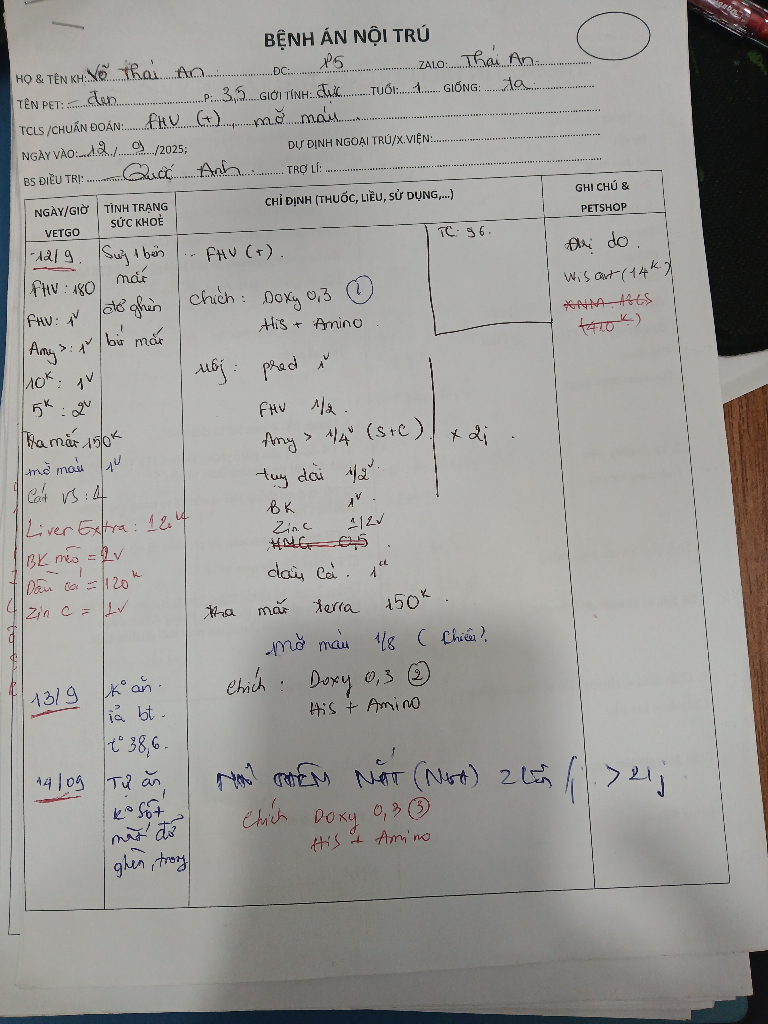 BỆNH ÁN NỘI TRÚ
HỌ & TÊN KH: Võ Thái An ĐC: P5 ZALO: Thái An
TÊN PET: đen P: 3,5 GIỚI TÍNH: đực TUỔI: 1 GIỐNG: ta
TCLS /CHUẨN ĐOÁN: FHV (+), mỡ máu
NGÀY VÀO: 12/ 9 /2025; DỰ ĐỊNH NGOẠI TRÚ/X.VIỆN:
BS ĐIỀU TRỊ: Quốc Anh TRỢ LÍ:
NGÀY/GIỜ VETGO
TÌNH TRẠNG SỨC KHOẺ
CHỈ ĐỊNH (THUỐC, LIỀU, SỬ DỤNG,...)
GHI CHÚ & PETSHOP
12/9
FHV: 180
FHV: 1v
Amy >: 1v
10K: 1v
5K: 2v
Tra mắt 150K
mỡ máu 1v
Cát VS: 1
Liver Extra: 120K
BK mèo = 1v
Dầu cá = 120K
Zin C = 1v
Sưng 1 bên
mắt
đổ ghèn
bứ mắt
- FHV (+).
TC: 96.
chích: Doxy 0,3 (1)
His + Amino.
uống: pred 1v
FHV 1/2.
Amy > 1/4v (S+C) x 2j.
tuy dài 1/2v
BK 1v
Zin c 1/2v
HMG 0,5
dầu cá. 1u
tra mắt terra 150K.
mỡ máu 1/8 (chiều).
(14K)
(410K)
13/9
K° ăn.
ỉa bt.
t° 38,6.
chích: Doxy 0,3 (2)
His + Amino
14/09
Tự ăn,
k° sốt,
mắt đổ
ghèn, trong
NHỎ THÊM MẮT (Nust) 2 lần /j > 21j
chích Doxy 0,3 (3)
His + Amino